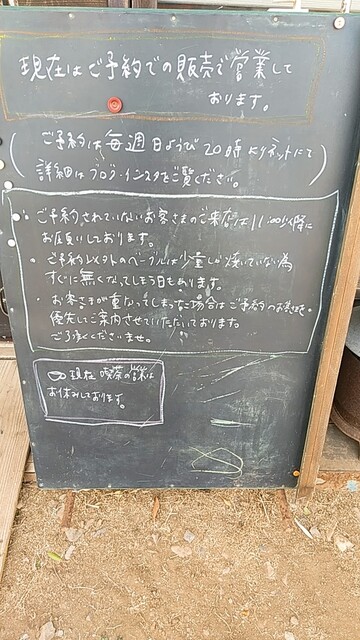 現在はご予約での販売で営業して
おります。
(ご予約は毎週日ようび20時よりネットにて
詳細はブログ・インスタをご覧ください。)
・ご予約されていないお客さまのご来店は11:00以降に
お店買いしております。
・ご予約以外のベーグルは少量しか焼いていない為
すぐに無くなってしまう日もあります。
・お客さまが重なってしまった場合はご予約のお客さまを
優先してご案内させていただいております。
ご了承くださいませ。
現在 喫茶の営業は
お休みしております。